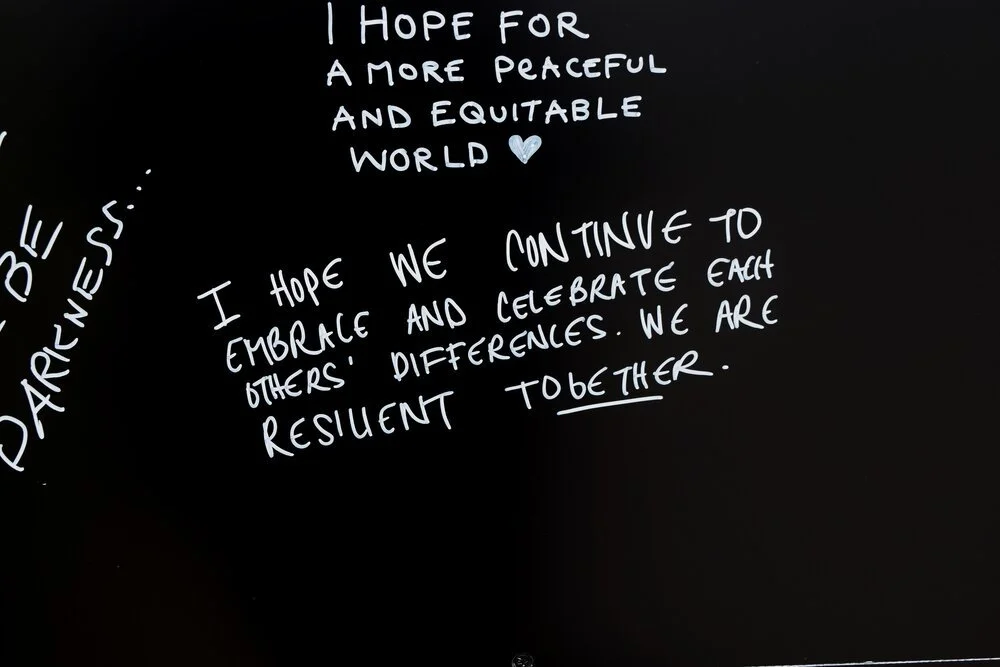 I HOPE FOR
A MORE PEACEFUL
AND EQUITABLE
WORLD
BE
DARKNESS...
I HOPE WE CONTINUE TO
EMBRACE AND CELEBRATE EACH
OTHERS' DIFFERENCES. WE ARE
RESILIENT TOGETHER.